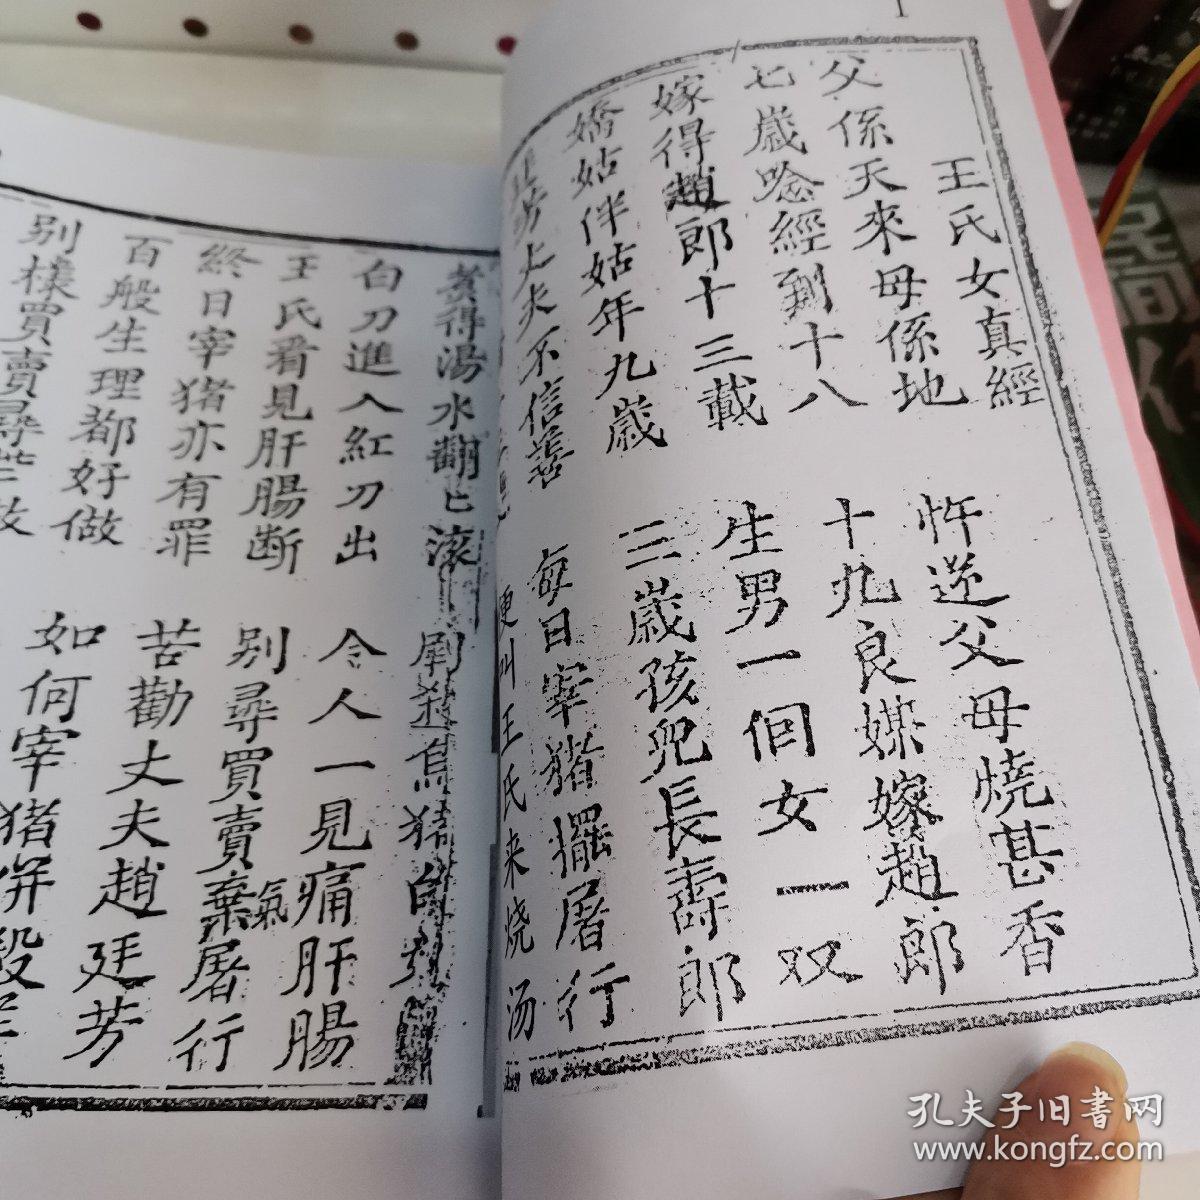 1
王氏女真經
父係天來母係地 忤逆父母燒甚香
七歲唸經到十八 十九良媒嫁趙郎
嫁得趙郎十三載 生男一個女一双
嬌姑伴姑年九歲 三歲孩兒長壽郎
丈夫不信善 每日宰猪擺屠行
更叫王氏来烧汤
煑得湯水翻匕滚 烏猪白
白刀進入紅刀出 令人一見痛肝腸
王氏看見肝腸断 别尋買賣棄屠行
氣
終日宰猪亦有罪 苦勸丈夫趙廷芳
百般生理都好做 如何宰猪併殺羊
别樣買賣尋
孔夫子旧書网
www.kongfz.com